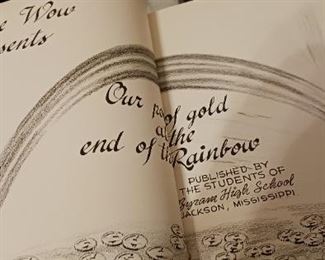 Wow
Our pot of gold
at the
end of the Rainbow
PUBLISHED BY
THE STUDENTS OF
Byram High School
JACKSON, MISSISSIPPI